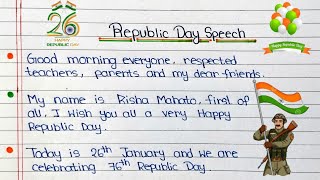 Republic Day Speech
26
HAPPY
REPUBLIC DAY
Happy Republic Day
Good morning everyone, respected
teachers, parents and my dear friends.
My name is Risha Mahato, first of
all, I wish you all a very Happy
Republic Day.
Today is 26th January and we are
celebrating 76th Republic Day.